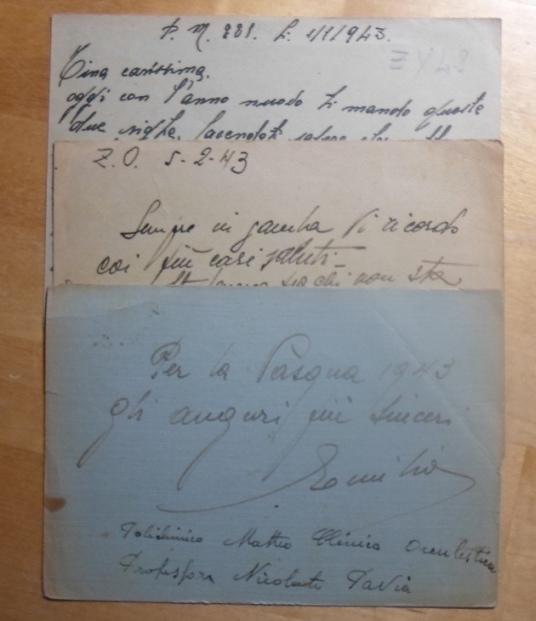 P. M. 881. Li 1/1/1943.
Tina carissima,
oggi con l'anno nuovo ti mando queste
due righe, facendoti sapere che
Z.O. 5-2-43
Sempre in gamba Vi ricordo
coi più cari saluti-
chi non sta
Per la Pasqua 1943
gli auguri più sinceri
Emilio
Policlinico Matteo Clinica Oculistica
Professore Nicolato Pavia